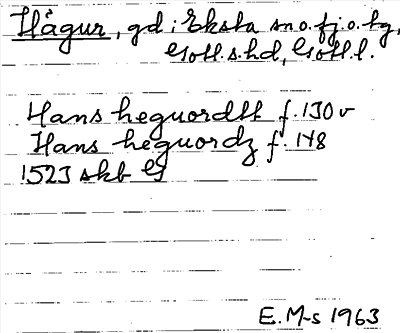 Hägur, gd i Eksta sn o. fj. o. tg,
Gotl. s. hd, Gotl. l.
Hans heguordtt f. 130 v
Hans heguordz f. 148
1523 skb G
E. M-s 1963